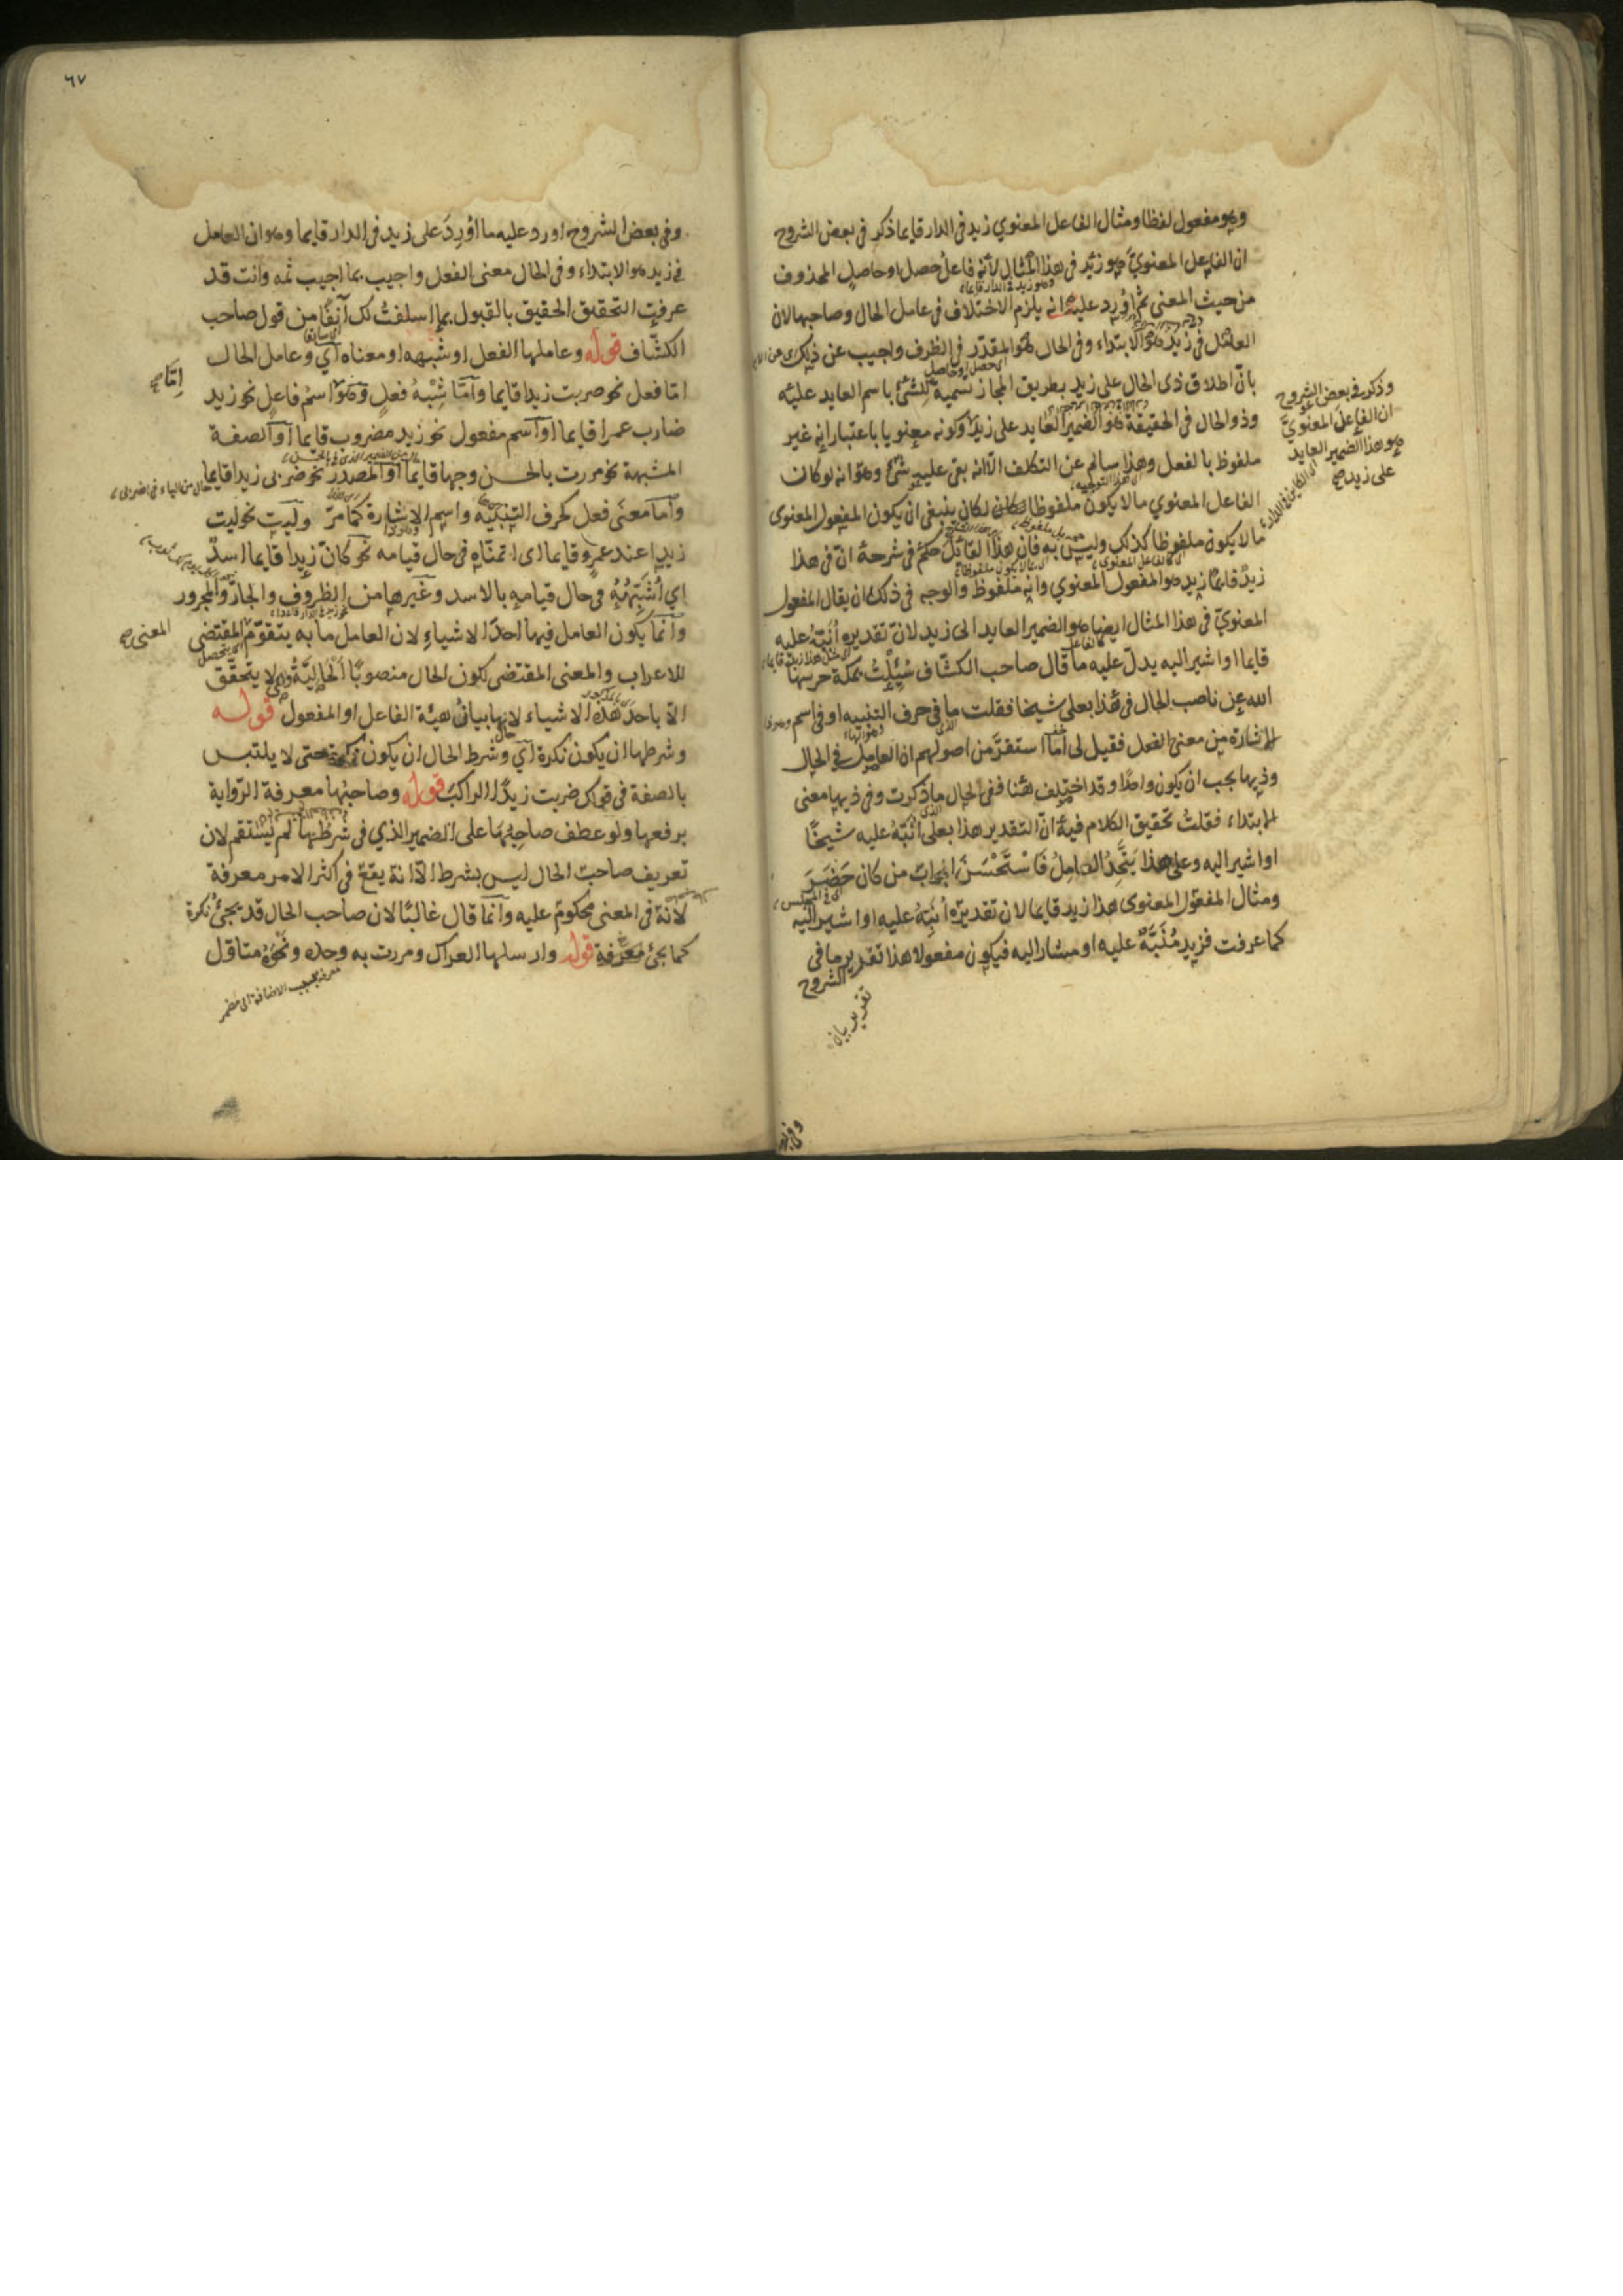 وهو مفعول لفظا ومثال الفاعل المعنوي زيد فى الدار قايما ذكر فى بعض الشروح
ان الفاعل المعنويّ هو زيد فى هذا المثال لأنه فاعل حصل او حاصل المحذوف
من حيث المعنى ثم اورد عليه انه يلزم الاختلاف فى عامل الحال وصاحبها لان
العامل فى زيد هو الابتداء وفى الحال هو المقدّر فى الظرف واجيب عن ذلك
بانّ اطلاق ذى الحال على زيد بطريق المجاز تسمية للشئ باسم العايد عليه
وذو الحال فى الحقيقة هو الضمير العايد على زيد وكونه معنويا باعتبار انه غير
ملفوظ بالفعل وهذا سالم عن التكلف الّا انه بقى عليه شئ وهو انه لو كان
الفاعل المعنوي ما لا يكون ملفوظا لكان ينبغى ان يكون المفعول المعنوى
ما لا يكون ملفوظا كذلك وليس به فان هذا القائل حكم فى شرحه انّ فى هذا
زيدٌ قايمًا زيد هو المفعول المعنوي وانه ملفوظ والوجه فى ذلك ان يقال المفعول
المعنويّ فى هذا المثال ايضا هو الضمير العايد الى زيد لانّ تقديره أُنَبِّهُ عليه
قايما او اشير اليه يدلّ عليه ما قال صاحب الكشّاف سُئِلْتُ بمكة حرسها
الله عن ناصب الحال فى هٰذا بعلى شيخا فقلت ما فى حرف التنبيه او فى اسم
الاشارة من معنى الفعل فقيل لى اما استقرّ من اصولهم ان العامل فى الحال
وذيها يجب ان يكون واحدًا وقد اختلف هٰنا ففى الحال ما ذكرت وفى ذيها معنى
الابتداء فقلتُ تحقيق الكلام فيه انّ التقدير هذا بعلى أُنَبِّهُ عليه شيخًا
او اشير اليه وعلى هذا يَتَّحِدُ العامِلُ فَاسْتَحْسَنَ الجوابَ من كان حَضَرَ
ومثال المفعول المعنوى هذا زيد قايما لان تقديره أُنَبِّهُ عليه او اشير اليه
كما عرفت فزيد مُنَبَّهٌ عليه او مشار اليه فيكون مفعولا هذا تقدير ما فى
الشروح
وذكر فى بعض الشروح
ان الفاعل المعنويّ
هو هذا الضمير العايد
على زيد صح
٦٧
وفى بعض الشروح اورد عليه ما اُورِدَ على زيد فى الدار قايما وهو ان العامل
فى زيد هو الابتداء وفى الحال معنى الفعل واجيب بما اجيب ثمه وانت قد
عرفت التحقيق الحقيق بالقبول بما اسلفتُ لك آنِفًا من قول صاحب
الكشّاف قوله وعاملها الفعل او شبهه او معناه اي وعامل الحال
امّا فعل نحو ضربت زيدا قايما وامّا شِبْهُ فعلٍ وهو اسمُ فاعلٍ نحو زيد
ضارب عمرا قايما او اسم مفعول نحو زيد مضروب قايما او الصفة
المشبهة نحو مررت بالحسن وجها قايما او المصدر نحو ضربى زيدا قايما
وامّا معنى فعل كحرف التنبيه واسم الاشارة كما مرّ وليت نحو ليت
زيدا عند عمرٍو قايما اى اتمنّاه فى حال قيامه نحو كانّ زيدا قايما اسدٌ
اي أُشَبِّهُهُ فى حال قيامه بالاسد وغيرها من الظروف والجار والمجرور
وانما يكون العامل فيها احدّ الاشياءِ لان العامل ما به يتقوّم المقتضى
للاعراب والمعنى المقتضى لكون الحال منصوبًا الحاليّةُ وهى لا يتحقّق
الّا باحد هٰذه الاشياء لانها بيانُ هيئة الفاعل او المفعول قوله
وشرطها ان يكون نكرة اي وشرط الحال ان يكون نكرة حتى لا يلتبس
بالصفة فى قولك ضربت زيدًا الراكبَ قوله وصاحبُها معرفة الرّواية
برفعها ولو عطف صاحِبُهَا على الضمير الذي فى شرطُها لم يستقم لان
تعريف صاحب الحال ليس بشرط الّا انه يقع فى اكثر الامر معرفة
لانّه فى المعنى محكومٌ عليه وانّما قال غالبًا لان صاحب الحال قد يجئ نكرة
كما يجئ معرفة قوله وارسلها العراك ومررت به وحده ونَحْوُهُ متاوّل
امّا صح
المعنى صح